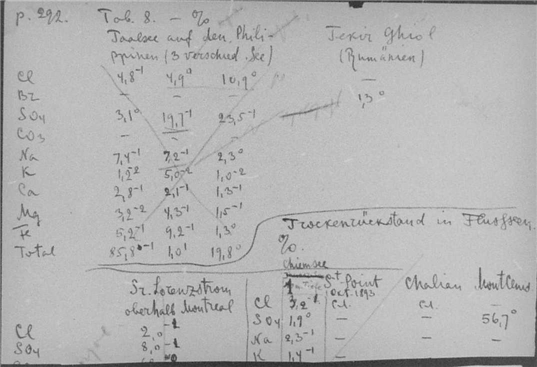 p. 292. Tab. 8. — %
Taalsee auf den Phili-
ppinen (3 verschied. See)
Texir Ghiol
(Rumänien)
Cl 4,8⁻¹ 4,9⁰ 10,9⁰ —
Br — — —
SO4 3,1⁰ 19,7⁻¹ 23,5⁻¹ 1,3⁰
CO3 — — —
Na 7,4⁻¹ 7,2⁻¹ 2,3⁰
K 1,2⁻² 5,0⁻² 1,0⁻²
Ca 2,8⁻¹ 2,1⁻¹ 1,3⁻¹
Mg 3,2⁻² 4,3⁻¹ 1,5⁻¹
K 5,2⁻¹ 9,2⁻¹ 1,3⁰
Total 85,8⁻¹ 1,0¹ 19,8⁰
Trockenrückstand in Flussseen
%.
Sr. Lorenzstrom
oberhalb Montreal
Cl 2,0⁻¹
SO4 8,0⁻¹
Chiemsee
St. Point
Oct. 1893
Chalian
MontCenis
Cl 3,2⁻¹ —
SO4 1,9⁰ — — 56,7⁰
Na 2,3⁻¹ — — —
K 1,4⁻¹ —